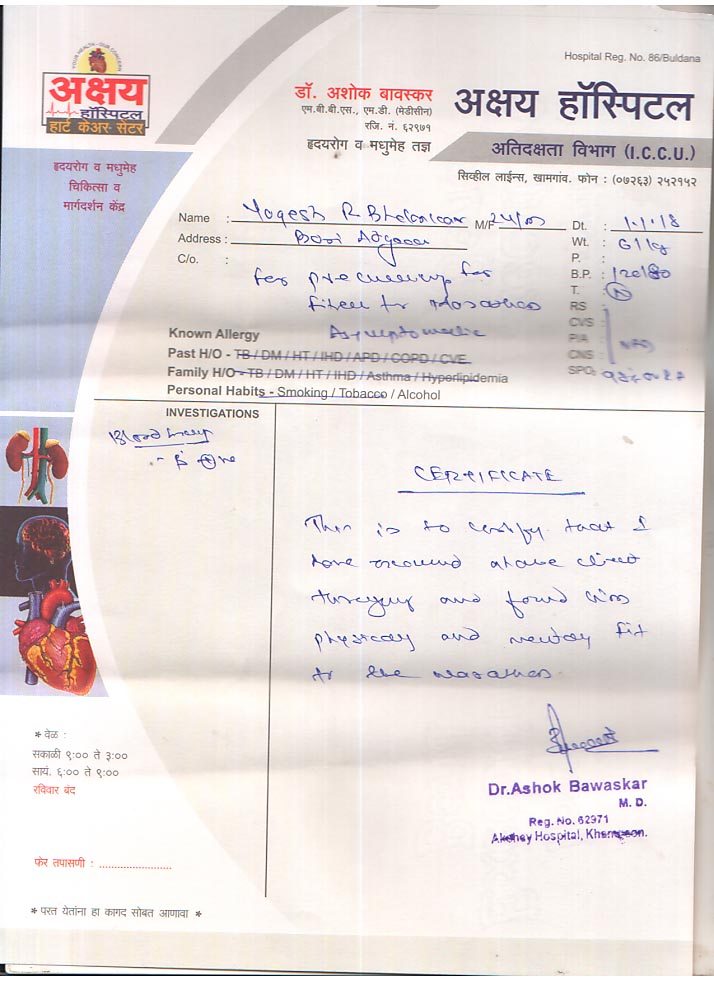 Hospital Reg. No. 86/Buldana
YOUR HEALTH - OUR CONCERN
अक्षय
हॉस्पिटल
हार्ट केअर सेंटर
डॉ. अशोक बावस्कर
एम.बी.बी.एस., एम.डी. (मेडीसीन)
रजि. नं. ६२९७१
हृदयरोग व मधुमेह तज्ञ
अक्षय हॉस्पिटल
अतिदक्षता विभाग (I.C.C.U.)
सिव्हील लाईन्स, खामगांव. फोन : (०७२६३) २५२१५२
हृदयरोग व मधुमेह
चिकित्सा व
मार्गदर्शन केंद्र
Name : Yogesh R M/F 24/m Dt. : 1.1.18
Address : Wt. : 61kg
C/o. : P. :
for for B.P. : 120/80
T. : N
RS :
Known Allergy Asymptomatic CVS :
P/A :
Past H/O - TB / DM / HT / IHD / APD / COPD / CVE. CNS :
Family H/O - TB / DM / HT / IHD / Asthma / Hyperlipidemia SPO2
Personal Habits - Smoking / Tobacco / Alcohol
INVESTIGATIONS
Blood group
- B +ve
CERTIFICATE
This is to certify that I
have examined above client
thoroughly and found him
physically and mentally fit
for the marathon.
Dr.Ashok Bawaskar
M. D.
Reg. No. 62971
Akshay Hospital, Khamgaon.
* वेळ :
सकाळी ९:०० ते ३:००
सायं. ६:०० ते ९:००
रविवार बंद
फेर तपासणी : ........................
* परत येतांना हा कागद सोबत आणावा *